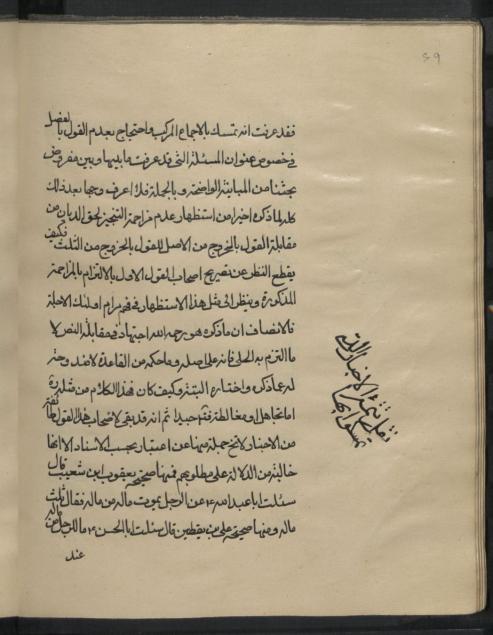 ٤٩
فقد عرفت انه تمسك بالاجماع المركب واحتجاج بعدم القول بالفصل
فى خصوص عنوان المسئلة التى قد عرفت ما بينها وبين مفروض
بحثنا من المباينة الواضحة وبالجملة فلا اعرف وجها بعد ذلك
كله لما ذكره اخيرا من استظهار عدم مزاحمة التنجيز لحق الديان من
مقابلة القول بالخروج من الاصل للقول بالخروج من الثلث فكيف
يقطع النظر عن تصريح اصحاب القول الاول بالالتزام بالمزاحمة
المذكورة وينظر الى مثل هذا الاستظهار فى فهم مرام اولئك الاجلة
فالانصاف ان ما ذكره هو رحمه الله اجتهاد فى مقابلة النص لا
ما التزم به الحلى فانه على اصله وما حكمه من القاعدة لا ضد
له عما ذكره واختاره البتة وكيف كان فهذا الكلام من مثله ره
اما تجاهل او مغالطة فتفه جيدا ثم انه قد بقى لاصحاب هذا القول طائفة
من الاخبار لا تخ جملة منها عن اعتبار بحسب الاسناد الا انها
خالية من الدلالة على مطلوبهم فمنها صحيحة يعقوب ابن شعيب قال
سئلت ابا عبد الله ع عن الرجل يموت ماله من ماله فقال ثلث
ماله ومنها صحيحة على بن يقطين قال سئلت ابا الحسن ع ما للرجل من ماله
عند
نقل بقية الاخبار التى
تمسكوا بها